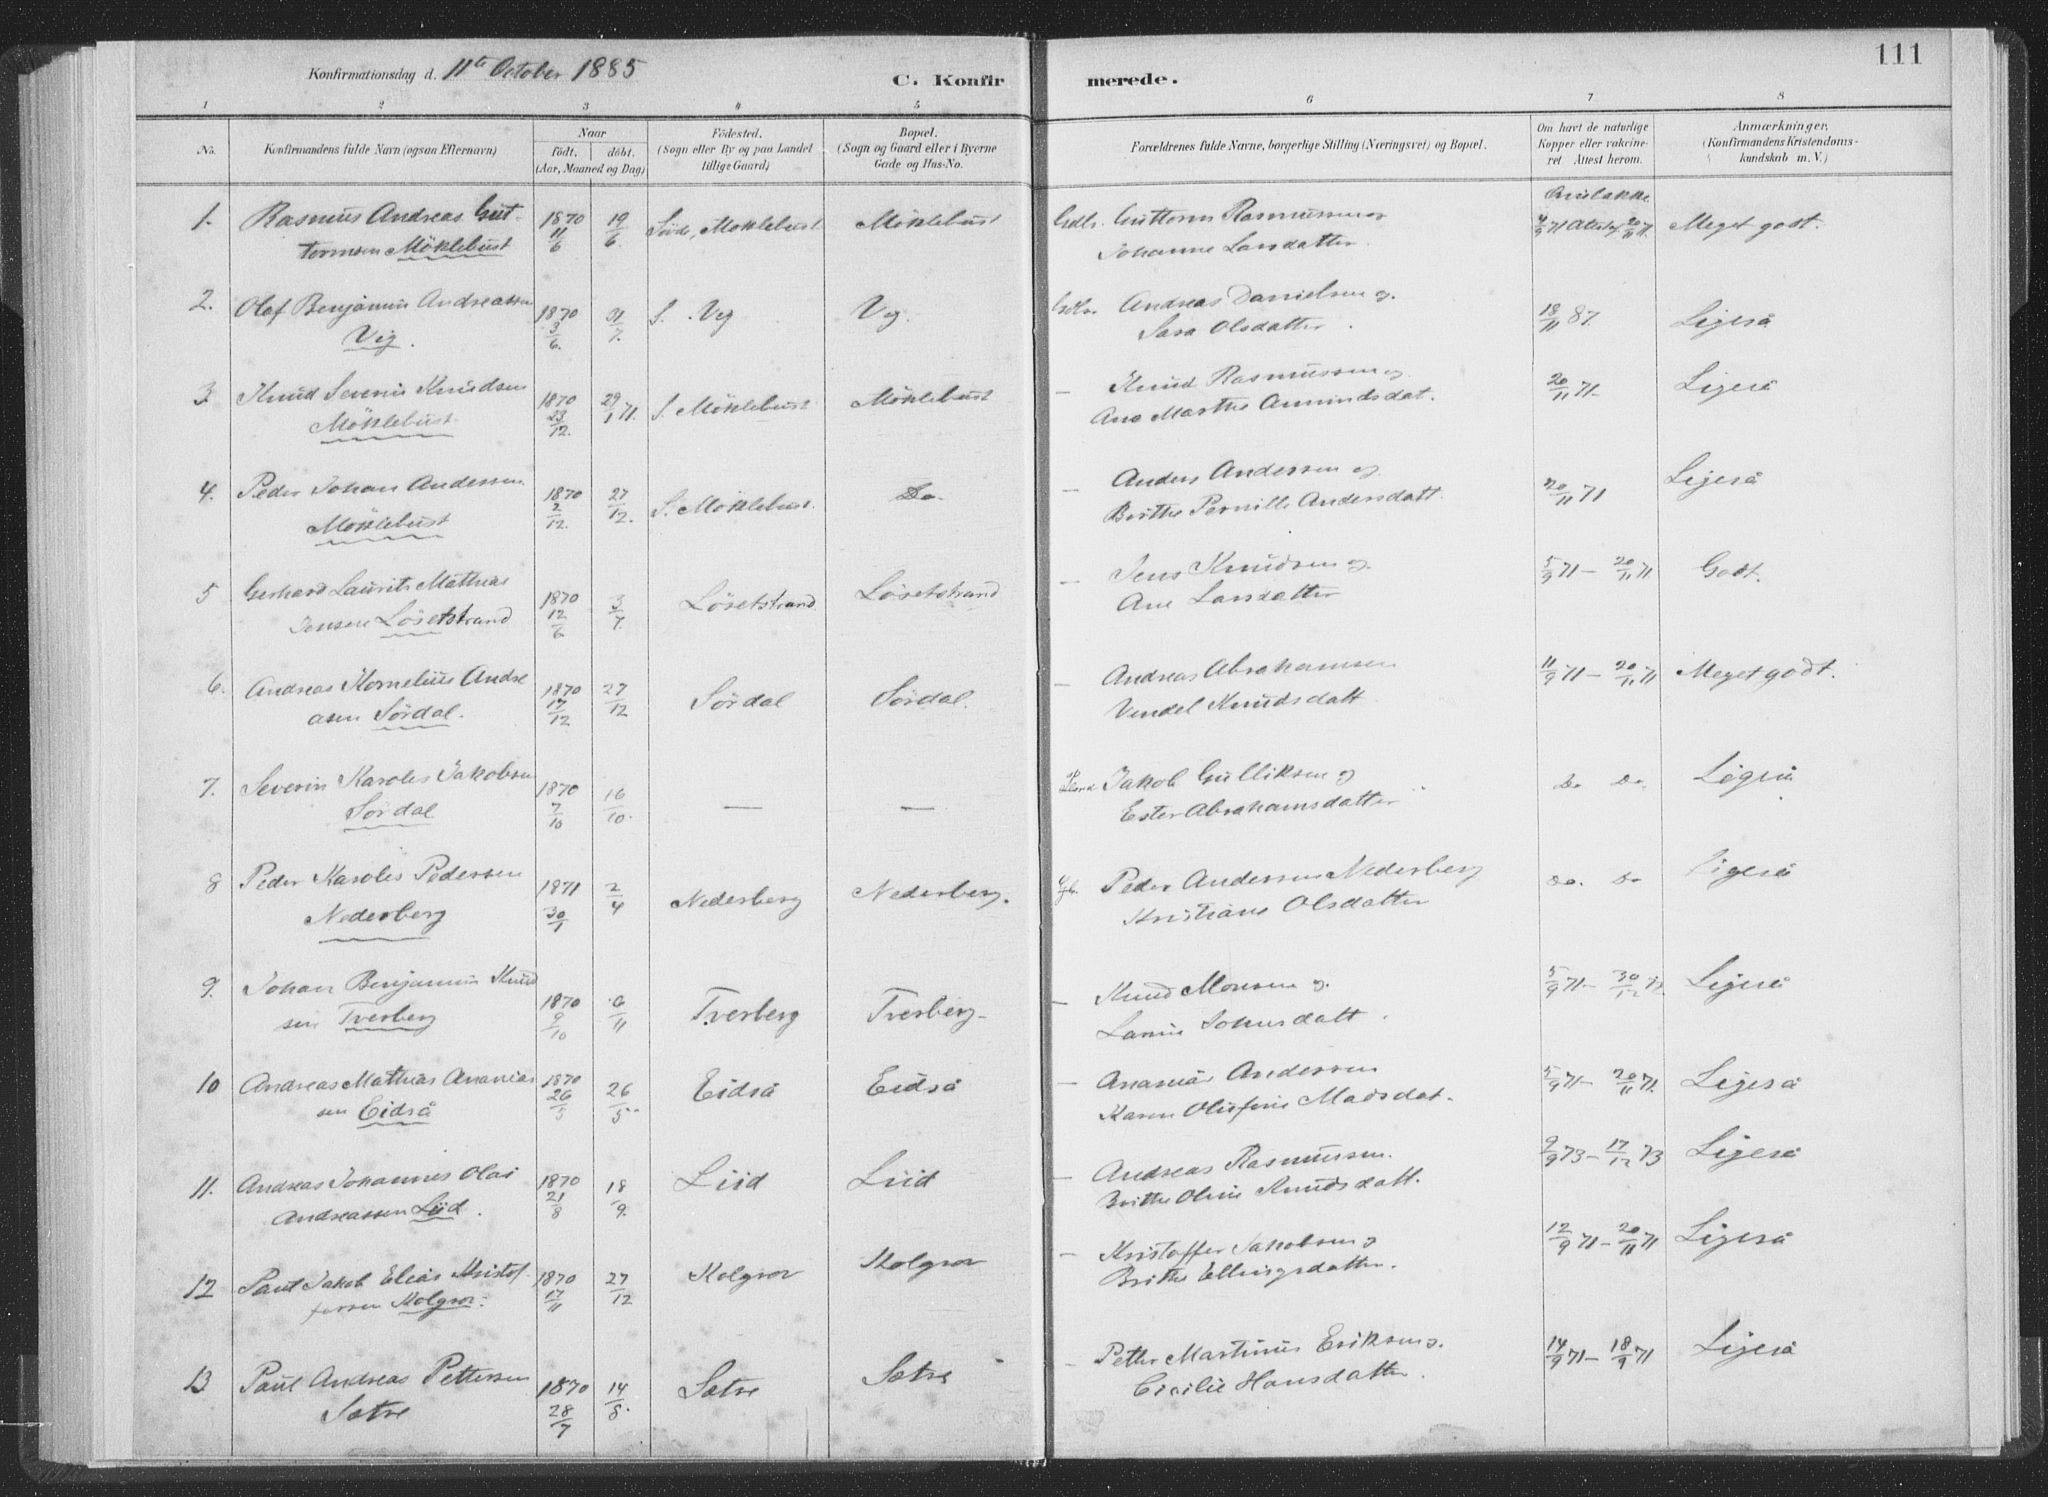 111
Konfirmationsdag d. 11te October 1885
C. Konfirmerede.
1 2 3 4 5 6 7 8
No.
Konfirmandens fulde Navn (ogsaa Efternavn)
Naar
födt. döbt.
(Aar, Maaned og Dag)
Födested.
(Sogn eller By og paa Landet
tillige Gaard)
Bopæl.
(Sogn og Gaard eller i Byerne
Gade og Hus-No.
Forældrenes fulde Navne, borgerlige Stilling (Næringsvei) og Bopæl.
Om havt de naturlige
Kopper eller vakcine-
ret Attest herom.
Anmærkninger.
(Konfirmandens Kristendoms-
kundskab m. V.)
1. Rasmus Andreas Gut- 1870 19/6 Möklebust Möklebust Gdbr. Guttorm Rasmussen og Meget godt.
tormsen Möklebust 11/6 Johanne Larsdatter
2. Olaf Benjamin Andreassen 1870 31/7 S. Vig Vig. Andreas Danielsen og 18/11 87. Ligeså
Vig. 3/6 Sara Olsdatter
3 Knud Severin Knudsen 1870 29/1 71. S. Möklebust Möklebust — Knud Rasmussen og 20/11 71 Ligeså
Möklebust 23/12. Ane Marthe Amundsdat.
4. Peder Johan Andersen 1870 27/12. S. Möklebust. Do. — Anders Andersen og 20/11 71 Ligeså
Möklebust 2/12. Brithe Pernille Andersdatt.
5 Gerhard Laurits Mathias 1870 3/7. Lösetstrand Lösetstrand — Jens Knudsen og 5/9 71 — 20/11 71 Godt.
Jensen Lösetstrand 12/6 Ane Larsdatter
6. Andreas Kornelius Andre 1870 27/12 Sördal Sördal. — Andreas Abrahamsen 11/9 71 — 20/11 71 Meget godt.
asen Sördal. 17/12 Vendel Knudsdatt
7. Severin Karoles Jakobsen 1870 16/10. — — Jakob Gulliksen og Do Do. Ligeså
Sördal 7/10 Ester Abrahamsdatter
8 Peder Karoles Pedersen 1871 2/4 Nederberg Nederberg. Peder Andersen Nederberg Do. Do Ligeså
Nederberg 30/1 Kristiane Olsdatter
9. Johan Benjamin Knud 1870 6/11 Tverberg Tverberg — Knud Monsen og 5/9 71 — 30/12 Ligeså
sen Tverberg 9/10
10 Andreas Mathias Ananias 1870 26/5 Eidså Eidså — Ananias Andersen 5/9 71 — 20/11 71. Ligeså
sen Eidså 26/5 Karen Olufine Madsdat.
11. Andreas Johannes Olai 1870 18/9. Liid Liid — Andreas Rasmussen. 9/9 73 — 17/12 73 Ligeså
Andreassen Liid. 21/8 Brithe Oline Knudsdatt.
12 Paul Jakob Elias Kristof 1870 27/12 Kolgrov Kolgrov — Kristoffer Jakobsen og 12/9 71 — 20/11 71 Ligeså
fersen Kolgrov. 17/11 Brithe Ellingsdatter.
13 Paul Andreas Pettersen 1870 14/8. Sætre Sætre — Petter Martinus Eriksen og 14/9 71 — 18/9 71 Ligeså
Sætre 28/7 Cicilie Hansdatter.